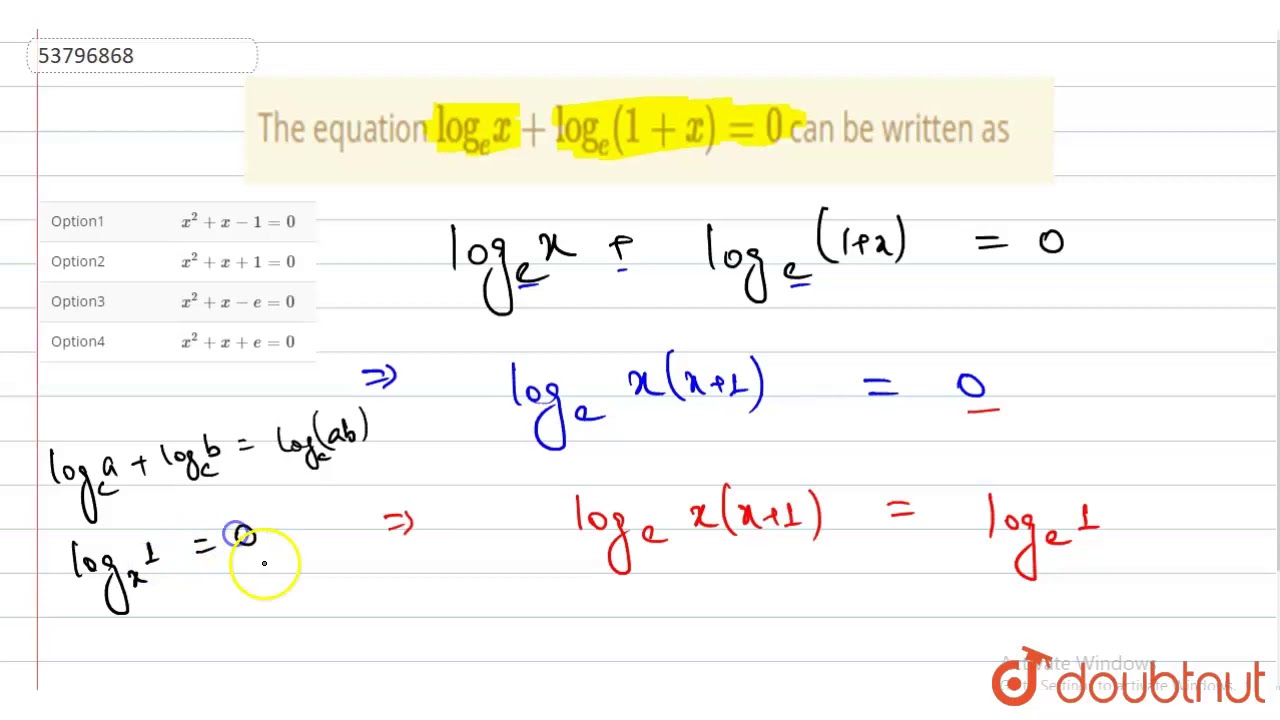 53796868
The equation logₑx + logₑ(1 + x) = 0 can be written as
Option1 x² + x − 1 = 0
Option2 x² + x + 1 = 0
Option3 x² + x − e = 0
Option4 x² + x + e = 0
logₑx + logₑ(1+x) = 0
⇒ logₑ x(x+1) = 0
log_c a + log_c b = log_c(ab)
⇒ logₑ x(x+1) = logₑ 1
logₓ 1 = 0
Activate Windows
Go to Settings to activate Windows.
doubtnut